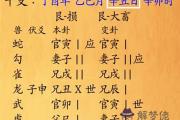 干支：丁酉年 乙巳月 辛丑日 辛卯时
艮-损 艮-大畜
兽 伏爻 本卦 变卦
蛇 官寅 | 应 官寅 |
勾 妻子 || 妻子 || 应
雀 兄戌 || 兄戌 ||
龙 子申 兄丑 X 世 兄辰 |
武 官卯 | 官寅 | 世
虎 父巳 | 妻子 |
解梦佬